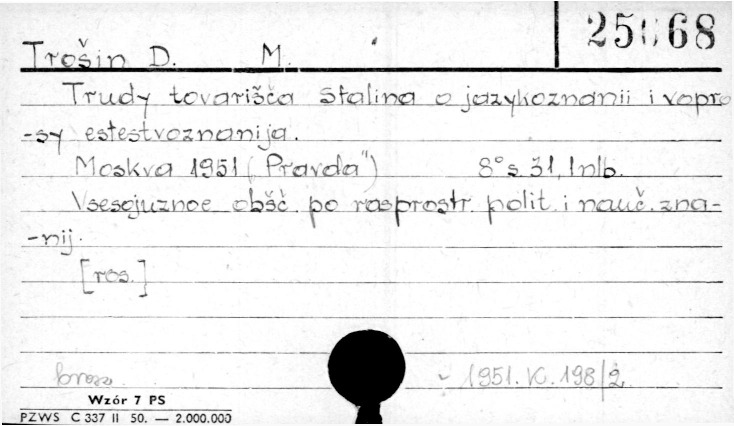 25068
Trošin D. M.
Trudy tovarišča Stalina o jazykoznanii i vopro
-sy estestvoznanija.
Moskva 1951 ("Pravda") 8° s. 31, 1 nlb.
Vsesojuznoe obšč. po rasprostr. polit. i nauč. zna-
-nij.
[ros.]
brosz. 1951. K. 198/2
Wzór 7 PS
PZWS C 337 II 50. — 2.000.000